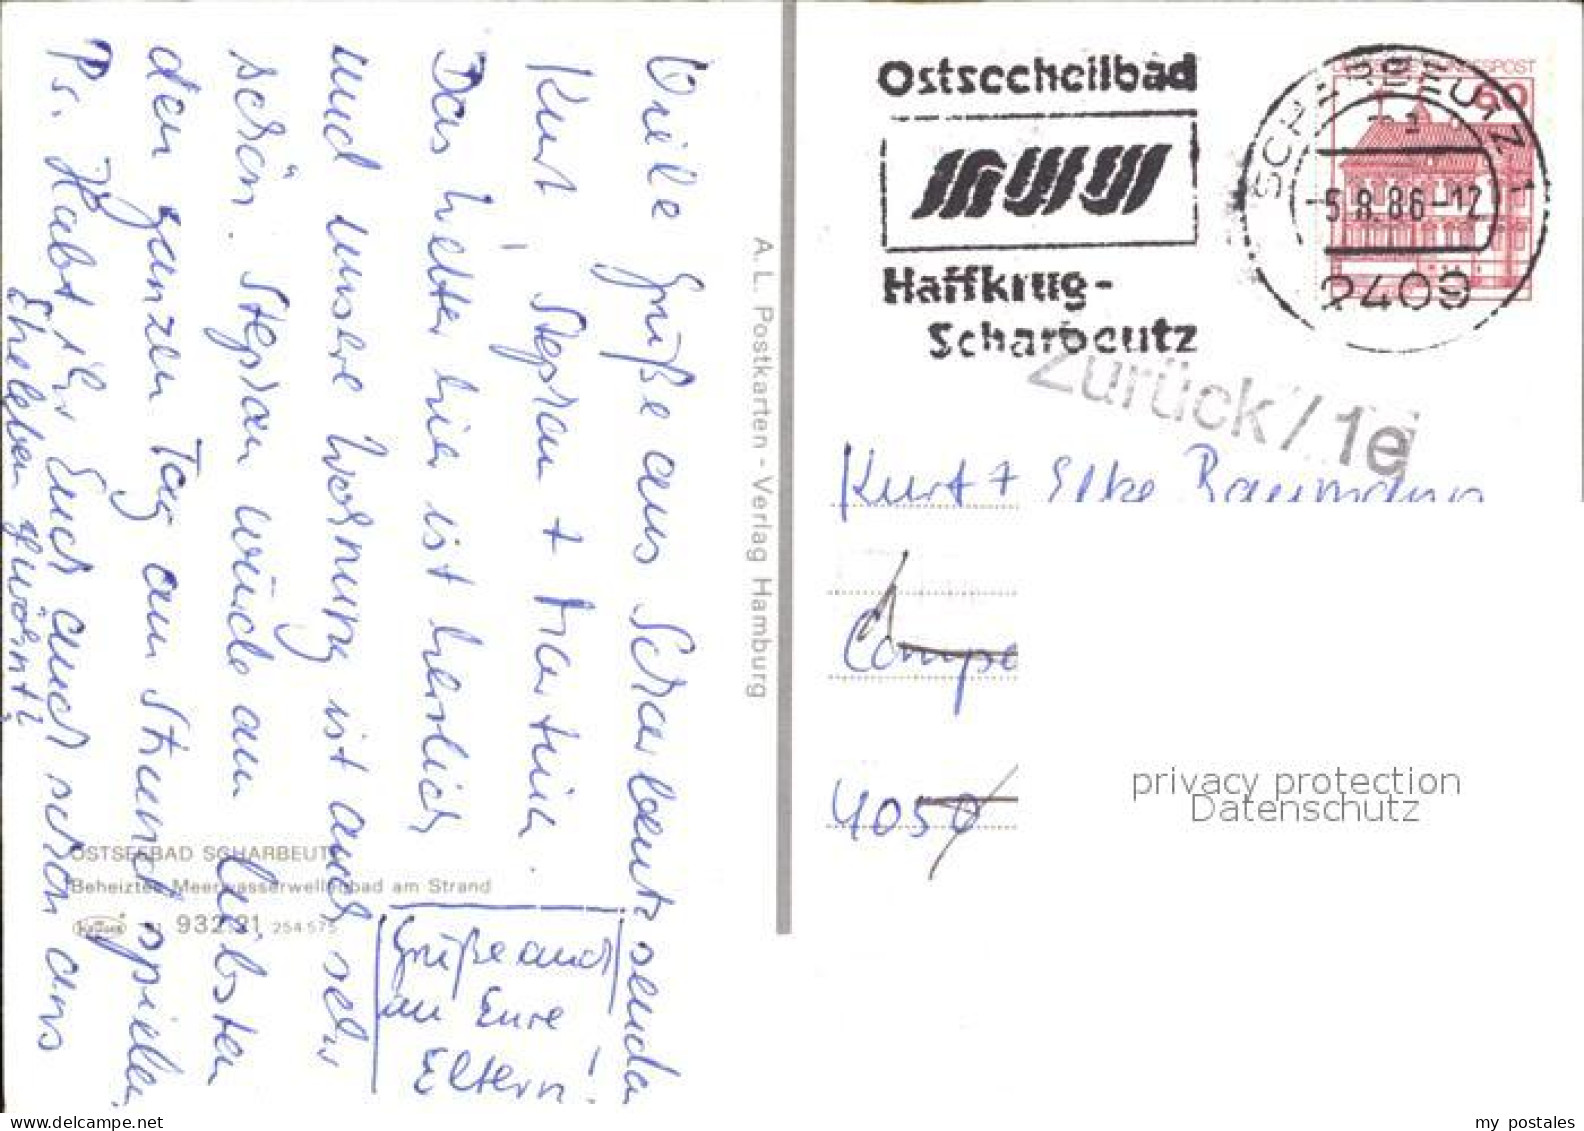 Viele Grüße aus Scharbeutz senden
Kurt, Stephan + Martina.
Das Wetter hier ist herrlich
und unsre Wohnung ist auch sehr
schön. Stephan würde am liebsten
den ganzen Tag am Strand spielen
Ps. Habt ihr Euch auch schon ans
Eheleben gewöhnt?
Grüße auch
an Eure
Eltern!
OSTSEEBAD SCHARBEUTZ
Beheiztes Meerwasserwellenbad am Strand
932 21 254 575
A. L. Postkarten - Verlag Hamburg
Ostseeheilbad
Haffkrug-
Scharbeutz
DEUTSCHE BUNDESPOST
60
SCHARBEUTZ 1
-5.8.86-12
2409
Zurück / 1e
Kurt + Elke Baumann
Campe
4050
privacy protection
Datenschutz
my postales